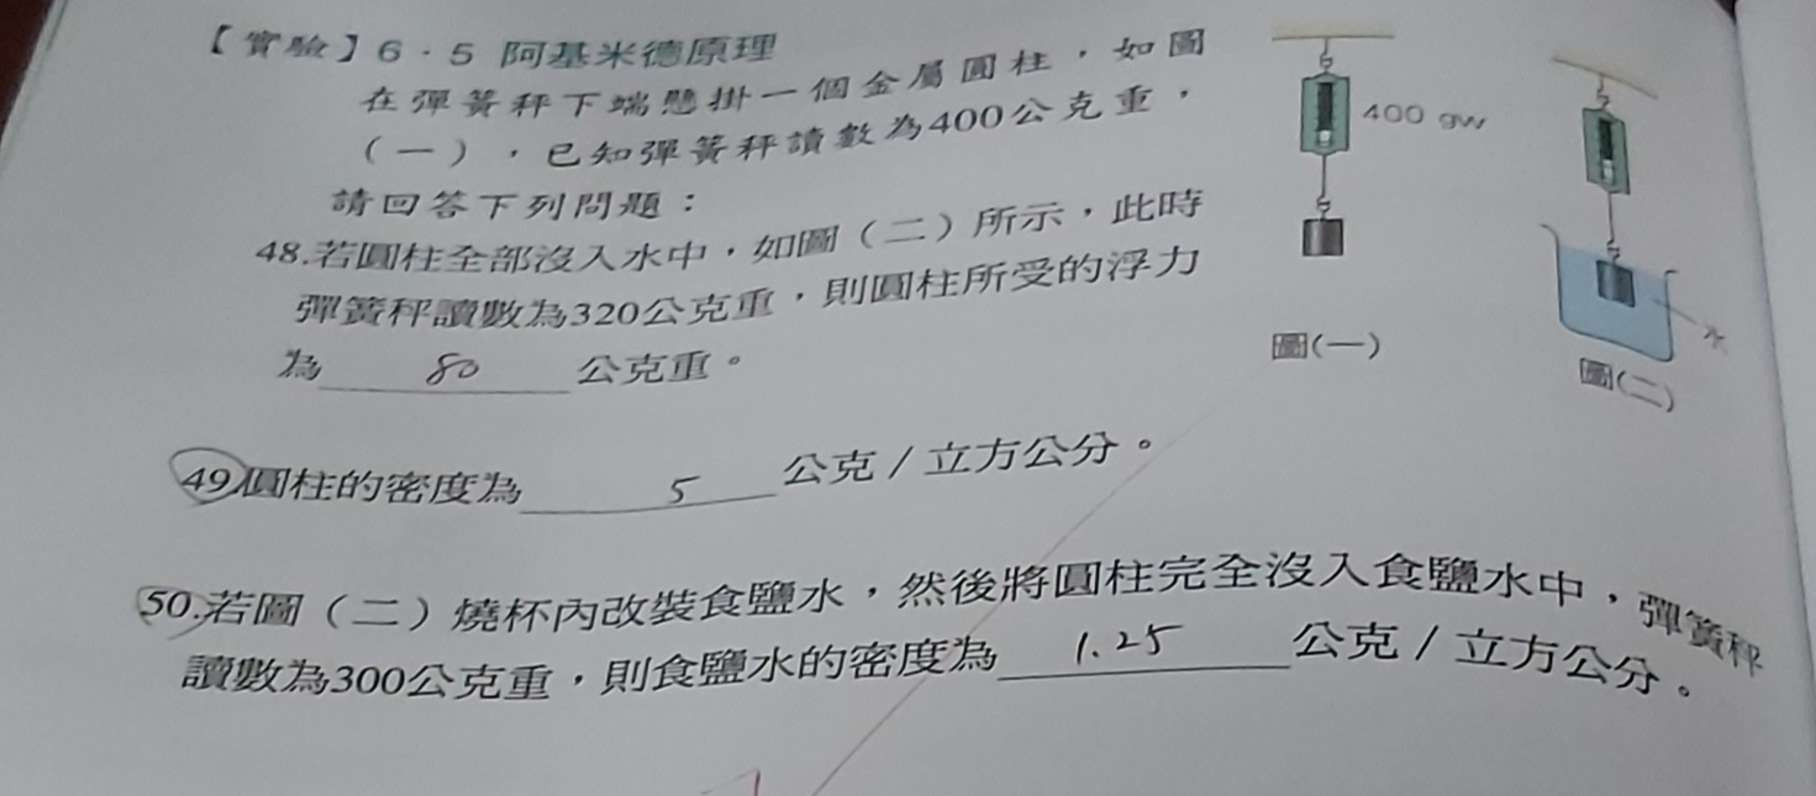 【實驗】6．5 阿基米德原理
在彈簧秤下端懸掛一個金屬圓柱，如圖
（一），已知彈簧秤讀數為400公克重，
請回答下列問題：
400 gw
48.若圓柱全部沒入水中，如圖（二）所示，此時
彈簧秤讀數為320公克重，則圓柱所受的浮力
為 80 公克重。
水
圖(一)
圖(二)
49.圓柱的密度為 5 公克／立方公分。
50.若圖（二）燒杯內改裝食鹽水，然後將圓柱完全沒入食鹽水中，彈簧秤
讀數為300公克重，則食鹽水的密度為 1.25 公克／立方公分。